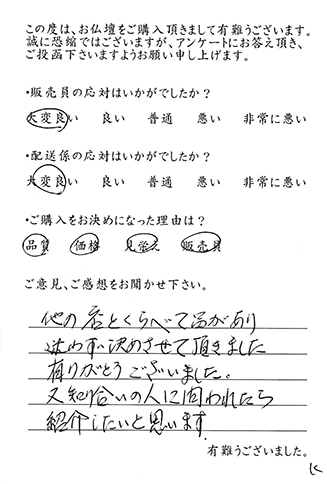 この度は、お仏壇をご購入頂きまして有難うございます。
誠に恐縮ではございますが、アンケートにお答え頂き、
ご投函下さいますようお願い申し上げます。
・販売員の応対はいかがでしたか？
大変良い 良い 普通 悪い 非常に悪い
・配送係の応対はいかがでしたか？
大変良い 良い 普通 悪い 非常に悪い
・ご購入をお決めになった理由は？
品質 価格 見栄え 販売員
ご意見、ご感想をお聞かせ下さい。
他の店とくらべて品があり
迷わず決めさせて頂きました
有りがとうございました。
又知り合いの人に問われたら
紹介したいと思います
有難うございました。